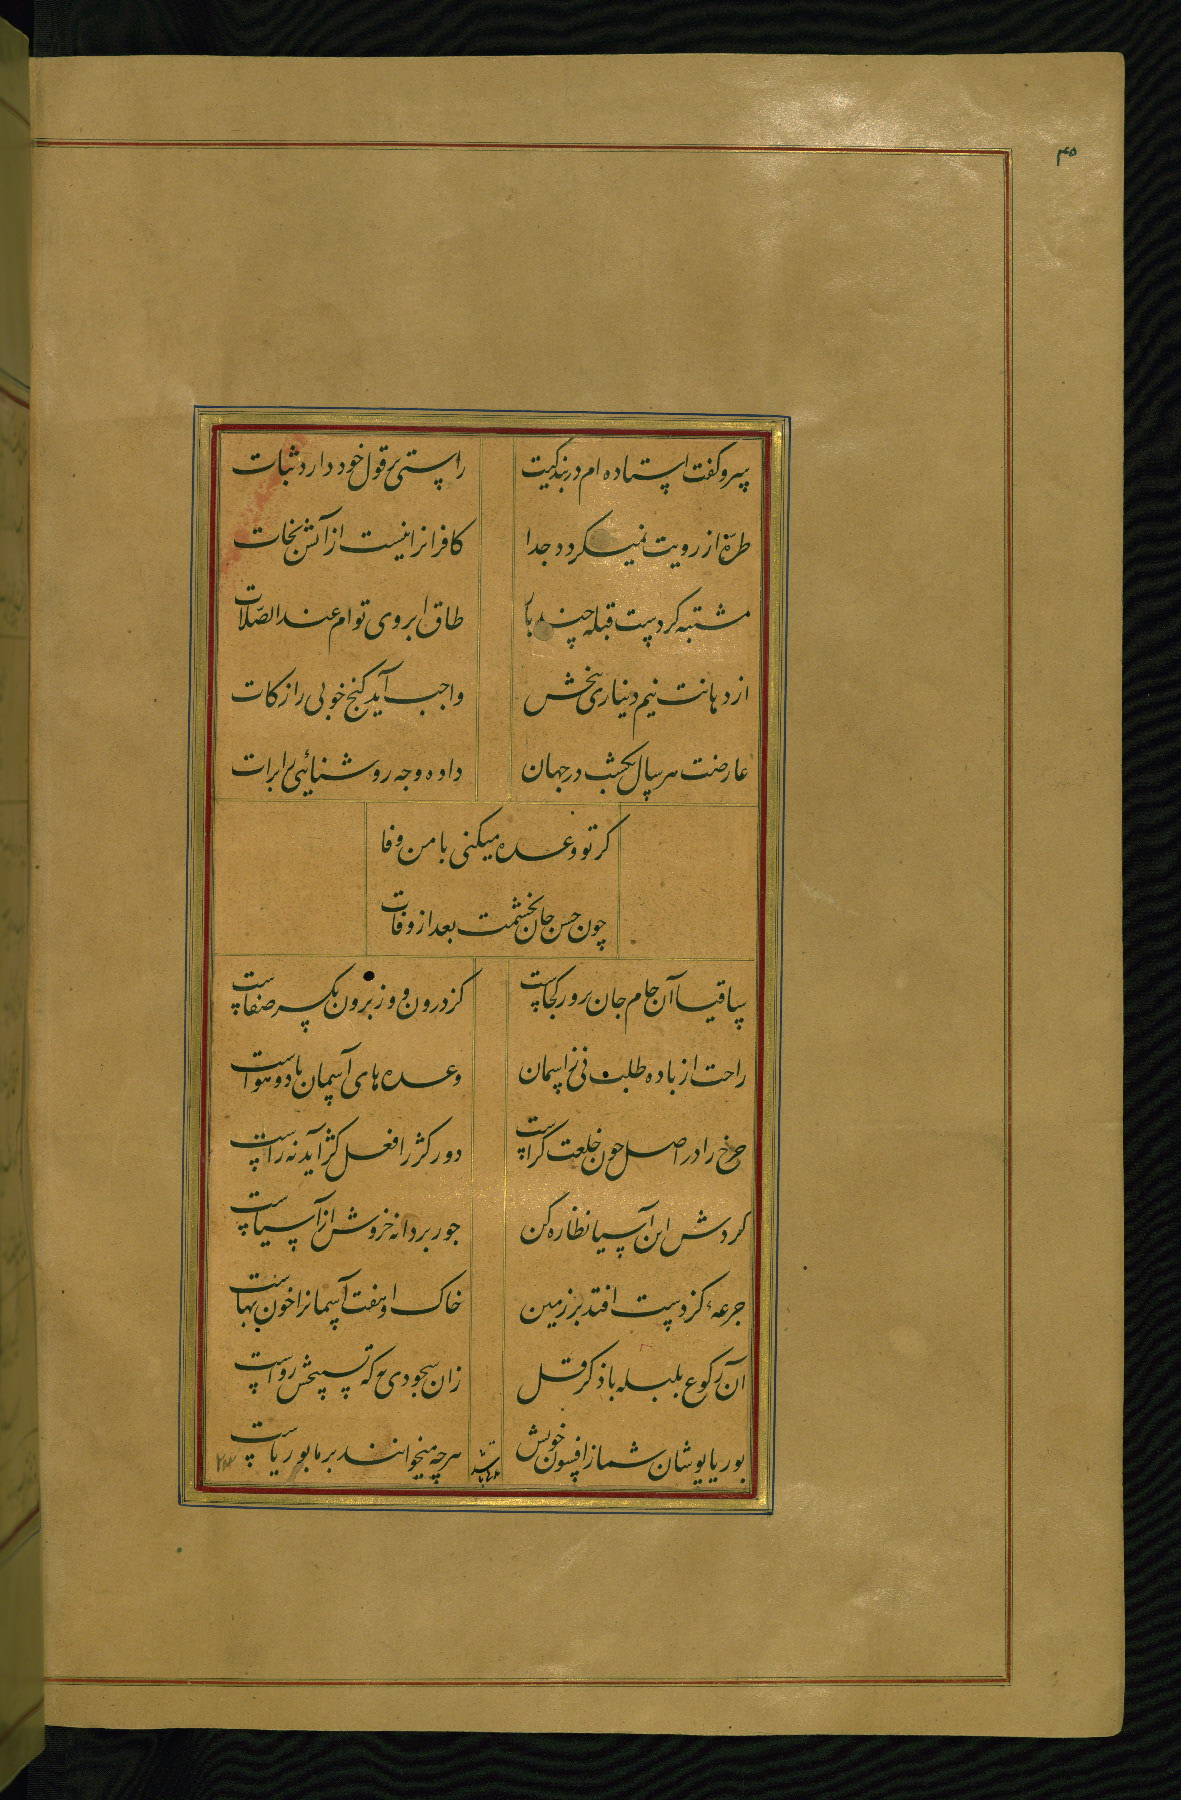 ۴۵
سرو گفت استاده ام در بندگیت
راستی بر قول خود دارد ثبات
طرهٔ از رویت نمیکردد جدا
کافرانرا نیست از آتش نجات
مشتبه کردست قبله چند بار
طاق ابروی توام عند الصّلات
از دهانت نیم دیناری ببخش
واجب آید کنج خوبی را زکات
عارضت هر سال یکشب در جهان
داده وجه روشنائی را برات
کر تو وعده میکنی با من وفا
چون حسن جان بخشمت بعد از وفات
ساقیا آن جام جان پرور کجاست
کز درون و وز برون یکسر صفاست
راحت از باده طلب نی ز اسمان
وعده های آسمان باد و هواست
چرخ را در اصل چون خلعت کژاست
دور کژ را فعل کژ آید نه راست
کردش این آسیا نظاره کن
جور بر دانه خروش از آسیاست
جرعهٔ کز دست افتد بر زمین
خاک او هفت آسمانرا خون بهاست
آن رکوع بلبله با ذکر قل
زان سجودی به که تسبیحش رواست
بوریا پوشان شما ز افسون خویش
هرچه میخوانند بر ما بوریاست